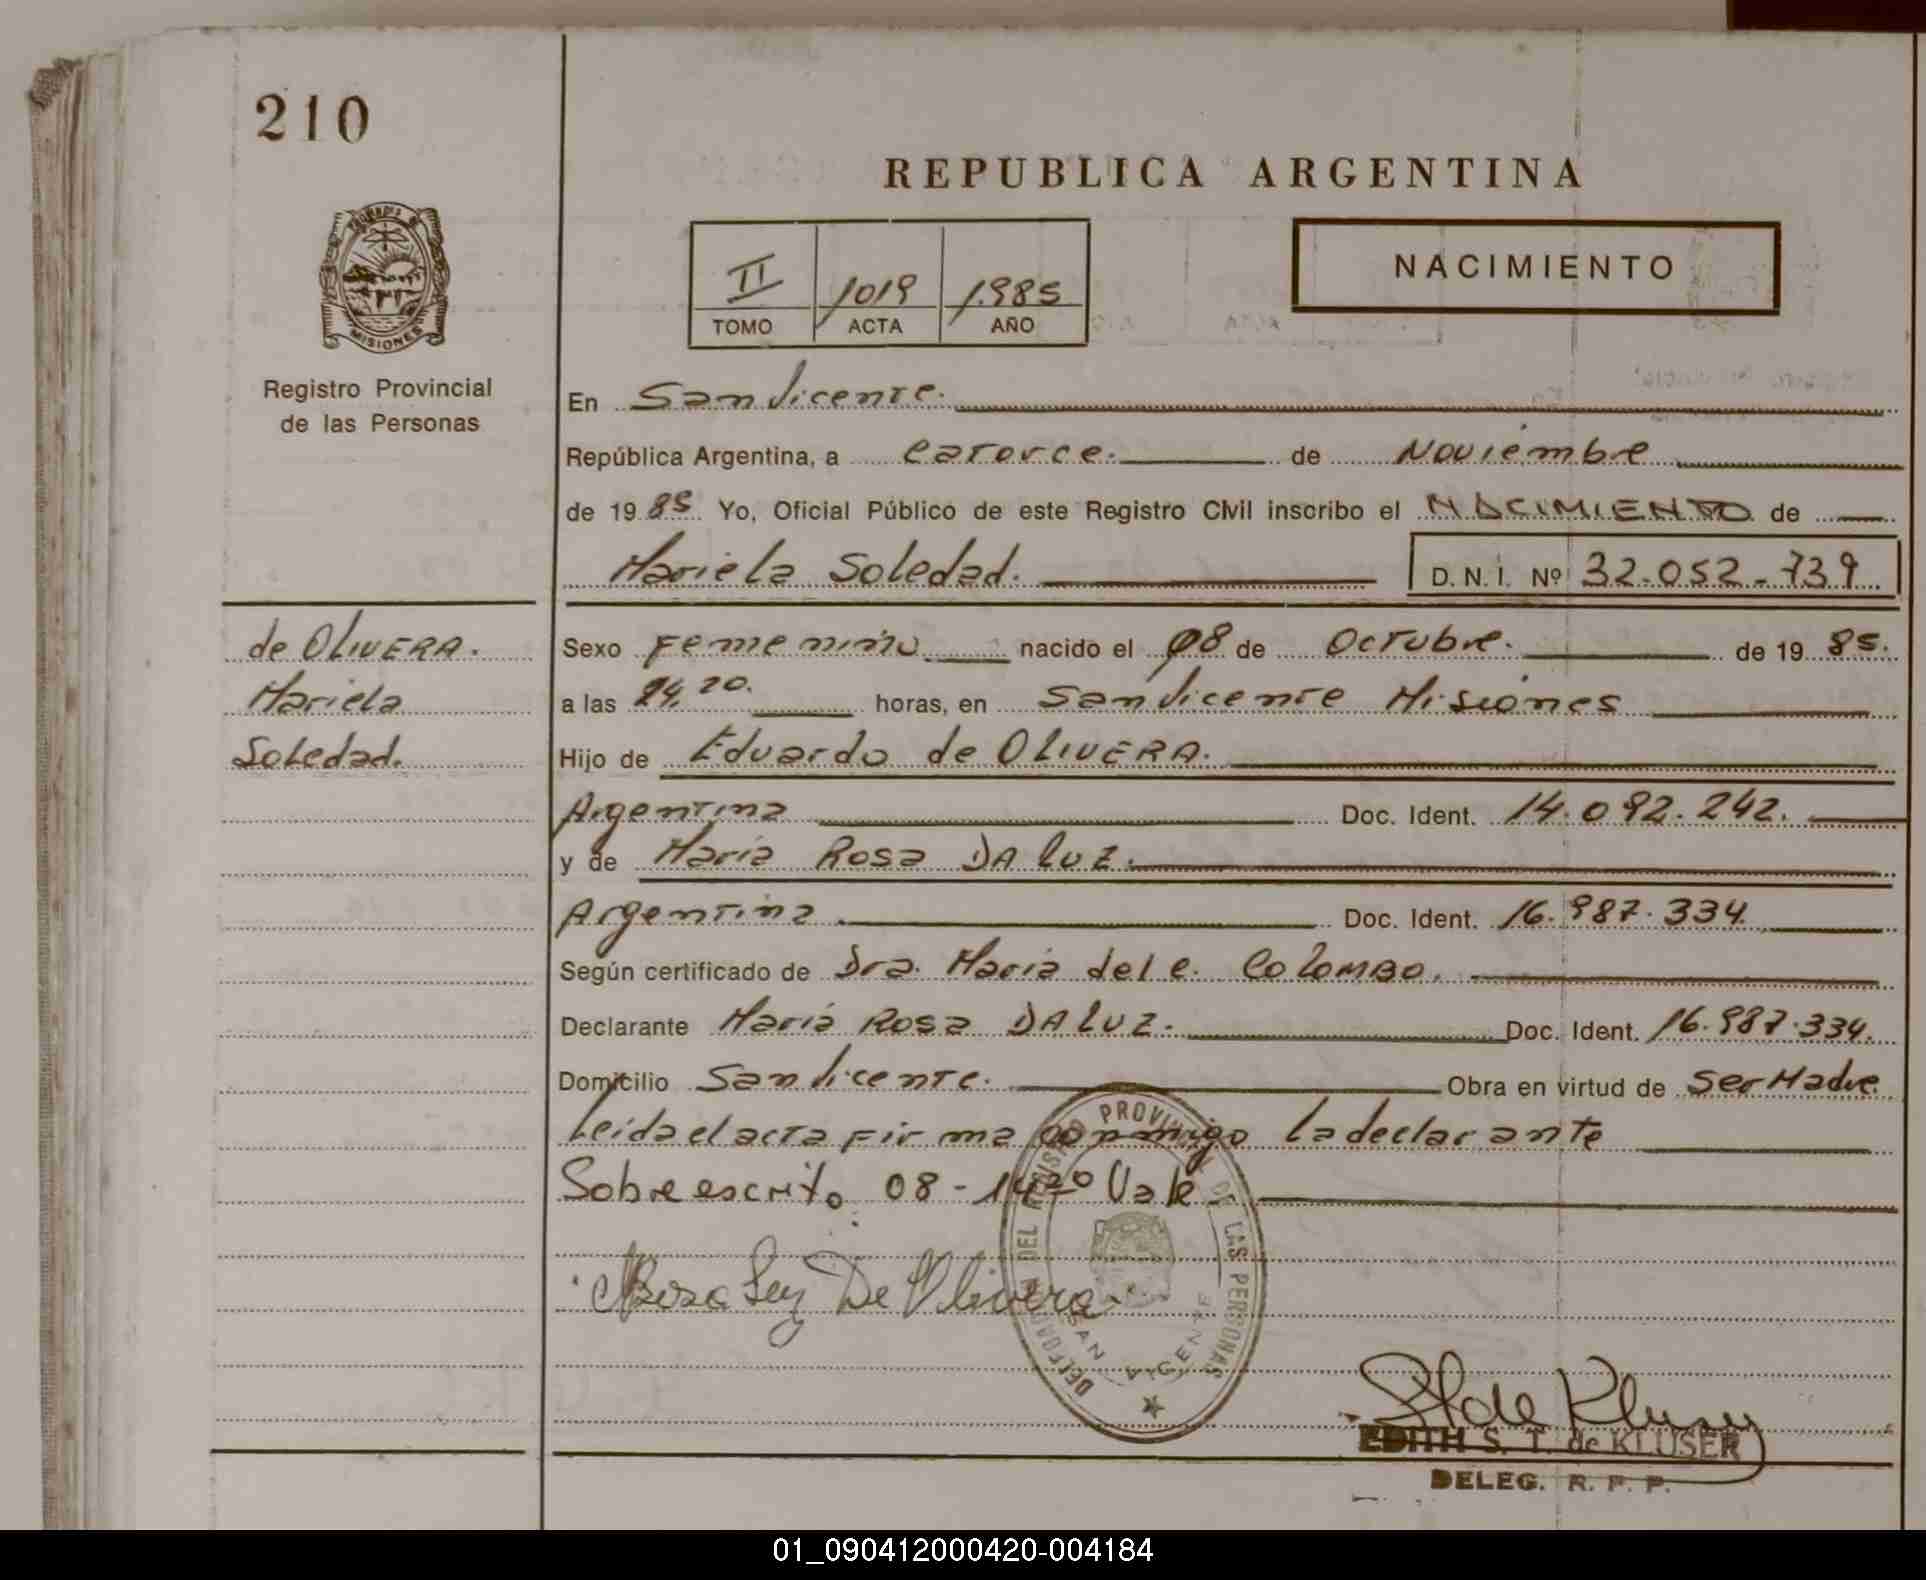 210
REPUBLICA ARGENTINA
II 1019 1.985
TOMO ACTA AÑO
NACIMIENTO
MISIONES
Registro Provincial
de las Personas
En San Vicente.
República Argentina, a catorce. de Noviembre
de 19 85 Yo, Oficial Público de este Registro Civil inscribo el NACIMIENTO de
Mariela Soledad. D.N.I. Nº 32.052-739
de OLIVERA.
Mariela
Soledad.
Sexo Femenino nacido el 08 de Octubre. de 19 85.
a las 14,20. horas, en San Vicente Misiones
Hijo de Eduardo de OLIVERA.
Argentina Doc. Ident. 14.092.242.
y de María Rosa DA LUZ.
Argentina. Doc. Ident. 16.987.334.
Según certificado de Dra. María del C. COLOMBO.
Declarante María Rosa DA LUZ. Doc. Ident. 16.987.334.
Domicilio San Vicente. Obra en virtud de Ser Madre.
Leida el acta firma conmigo la declarante
Sobreescrito 08-14,20 Vale
DEL REGISTRO PROVINCIAL DE LAS PERSONAS
SAN VICENTE
Rosa De Olivera
EDITH S. T. de KLUSER
DELEG. R. P. P.
01_090412000420-004184